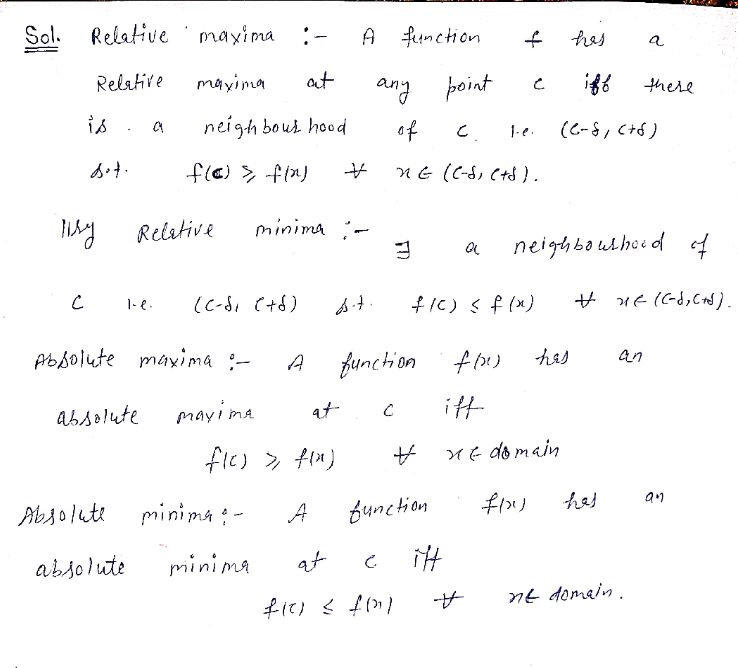 Sol. Relative maxima :- A function f has a
Relative maxima at any point c iff there
is a neighbour hood of c. i.e. (c-δ, c+δ)
s.t. f(c) ≥ f(x) ∀ x ∈ (c-δ, c+δ).
lllly Relative minima :- ∃ a neighbourhood of
c i.e. (c-δ, c+δ) s.t. f(c) ≤ f(x) ∀ x ∈ (c-δ, c+δ).
Absolute maxima :- A function f(x) has an
absolute maxima at c iff
f(c) ≥ f(x) ∀ x ∈ domain
Absolute minima :- A function f(x) has an
absolute minima at c iff
f(c) ≤ f(x) ∀ x ∈ domain.